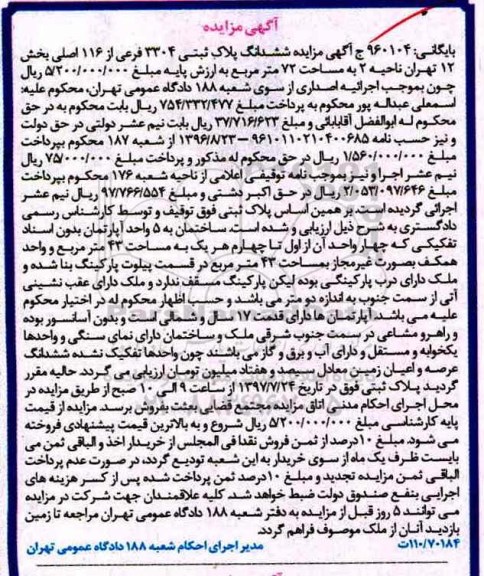 آگهی مزایده
بایگانی: ۹۶۰۱۰۴ ج آگهی مزایده ششدانگ پلاک ثبتی ۳۳۰۴ فرعی از ۱۱۶ اصلی بخش
۱۲ تهران ناحیه ۲ به مساحت ۷۲ متر مربع به ارزش پایه مبلغ ۵/۲۰۰/۰۰۰/۰۰۰ ریال
چون بموجب اجرائیه اصداری از سوی شعبه ۱۸۸ دادگاه عمومی تهران، محکوم علیه:
اسمعلی عبداله پور محکوم به پرداخت مبلغ ۷۵۴/۳۳۲/۴۷۷ ریال بابت محکوم به در حق
محکوم له ابوالفضل آقابابائی و مبلغ ۳۷/۷۱۶/۶۲۳ ریال بابت نیم عشر دولتی در حق دولت
و نیز حسب نامه ۹۶۱۰۱۱۰۲۱۰۴۰۰۶۸۵ – ۱۳۹۶/۸/۲۳ از شعبه ۱۸۷ محکوم بپرداخت
مبلغ ۱/۵۶۰/۰۰۰/۰۰۰ ریال در حق محکوم له مذکور و پرداخت مبلغ ۷۵/۰۰۰/۰۰۰ ریال
نیم عشر اجرا و نیز بموجب نامه توقیفی اعلامی از ناحیه شعبه ۱۷۶ محکوم بپرداخت
مبلغ ۲/۰۵۳/۰۹۷/۶۴۶ ریال در حق اکبر دشتی و مبلغ ۹۷/۷۶۶/۵۵۴ ریال نیم عشر
اجرائی گردیده است. بر همین اساس پلاک ثبتی فوق توقیف و توسط کارشناس رسمی
دادگستری به شرح ذیل ارزیابی و شده است. ساختمان به ۵ واحد آپارتمان بدون اسناد
تفکیکی که چهار واحد آن از اول تا چهارم هر یک به مساحت ۴۳ متر مربع و واحد
همکف بصورت غیرمجاز بمساحت ۴۳ متر مربع در قسمت پیلوت پارکینگ بنا شده و
ملک دارای درب پارکینگی بوده لیکن پارکینگ مسقف ندارد و ملک دارای عقب نشینی
آتی از سمت جنوب به اندازه دو متر می باشد و حسب اظهار محکوم له در اختیار محکوم
علیه می باشد. آپارتمان ها دارای قدمت ۱۷ سال و شمالی است و بدون آسانسور بوده
و راهرو مشاعی در سمت جنوب شرقی ملک و ساختمان دارای نمای سنگی و واحدها
یکخوابه و مستقل و دارای آب و برق و گاز می باشند چون واحدها تفکیک نشده ششدانگ
عرصه و اعیان زمین معادل سیصد و هفتاد میلیون تومان ارزیابی می گردد. حالیه مقرر
گردید پلاک ثبتی فوق در تاریخ ۱۳۹۷/۷/۲۴ از ساعت ۹ الی ۱۰ صبح از طریق مزایده در
محل اجرای احکام مدنی – اتاق مزایده مجتمع قضایی بعثت بفروش برسد. مزایده از قیمت
پایه کارشناسی مبلغ ۵/۲۰۰/۰۰۰/۰۰۰ ریال شروع و به بالاترین قیمت پیشنهادی فروخته
می شود. مبلغ ۱۰ درصد از ثمن فروش نقدا فی المجلس از خریدار اخذ و الباقی ثمن می
بایست ظرف یک ماه از سوی خریدار به این شعبه تودیع گردد، در صورت عدم پرداخت
الباقی ثمن مزایده تجدید و مبلغ ۱۰ درصد ثمن پرداخت شده پس از کسر هزینه های
اجرایی بنفع صندوق دولت ضبط خواهد شد. کلیه علاقمندان جهت شرکت در مزایده
می توانند ۵ روز قبل از مزایده به دفتر شعبه ۱۸۸ دادگاه عمومی تهران مراجعه تا زمین
بازدید آنان از ملک موصوف فراهم گردد.
۱۱۰/۷۰۱۸۴ت مدیر اجرای احکام شعبه ۱۸۸ دادگاه عمومی تهران